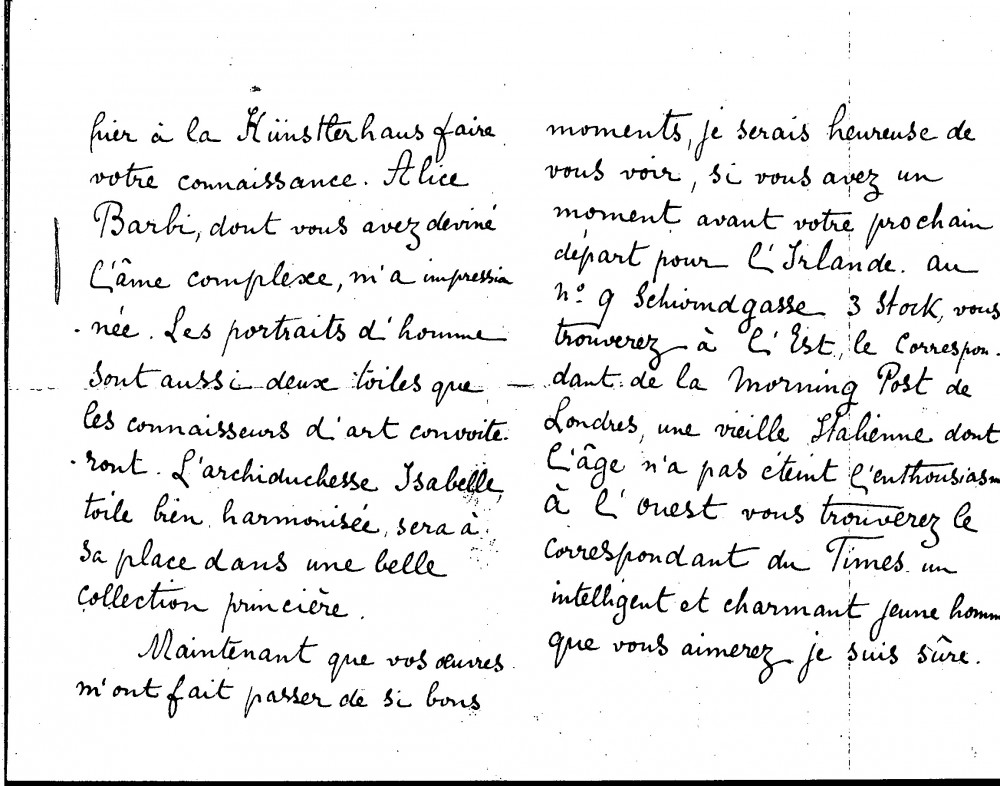 hier à la Künstlerhaus faire
votre connaissance. Alice
Barbi, dont vous avez deviné
l'âme complexe, m'a impression
-née. Les portraits d'homme
sont aussi deux toiles que
les connaisseurs d'art convoite-
-ront. L'archiduchesse Isabelle,
toile bien harmonisée, sera à
sa place dans une belle
collection princière.
Maintenant que vos œuvres
m'ont fait passer de si bons
moments, je serais heureuse de
vous voir, si vous avez un
moment avant votre prochain
départ pour l'Irlande. au
nº 9 Schwindgasse 3 Stock, vous
trouverez à l'Est, le Correspon-
dant de la Morning Post de
Londres, une vieille Italienne dont
l'âge n'a pas éteint l'enthousiasm
à l'ouest vous trouverez le
correspondant du Times un
intelligent et charmant jeune homm
que vous aimerez je suis sûre.